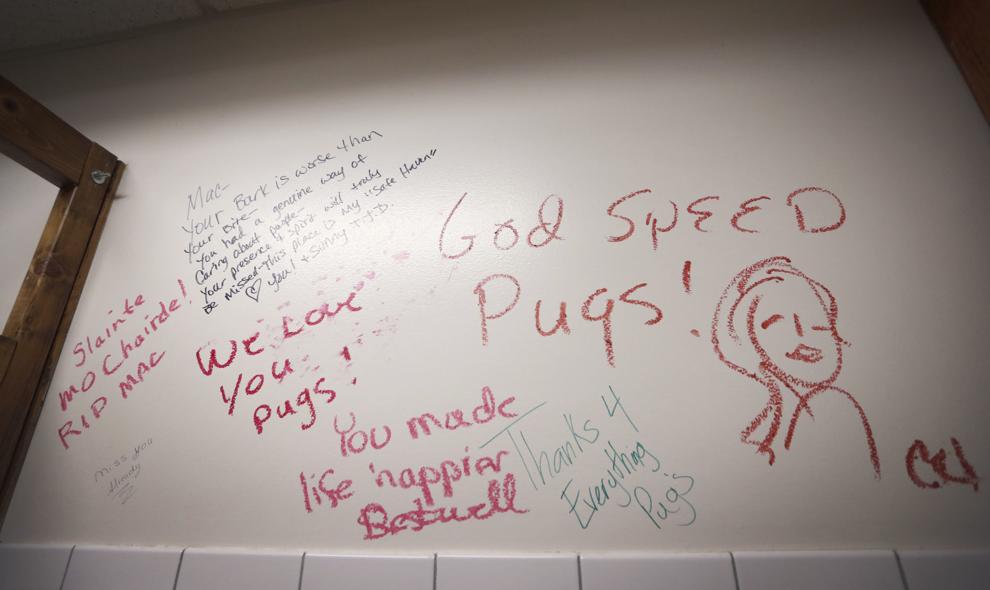 Mac-
Your Bark is worse than
your Bite-
You had a genuine way of
Caring about people-
your presence & spirit will truly
be missed-This place is my "Safe Haven"
♡ you! + Sunny T.J.D.
Slainte
mo Chairde!
RIP MAC
Miss you
Already
We Love
you
pugs!
You made
life happier
Bestwell
Thanks 4
Everything
Pugs
God SpEED
Pugs!